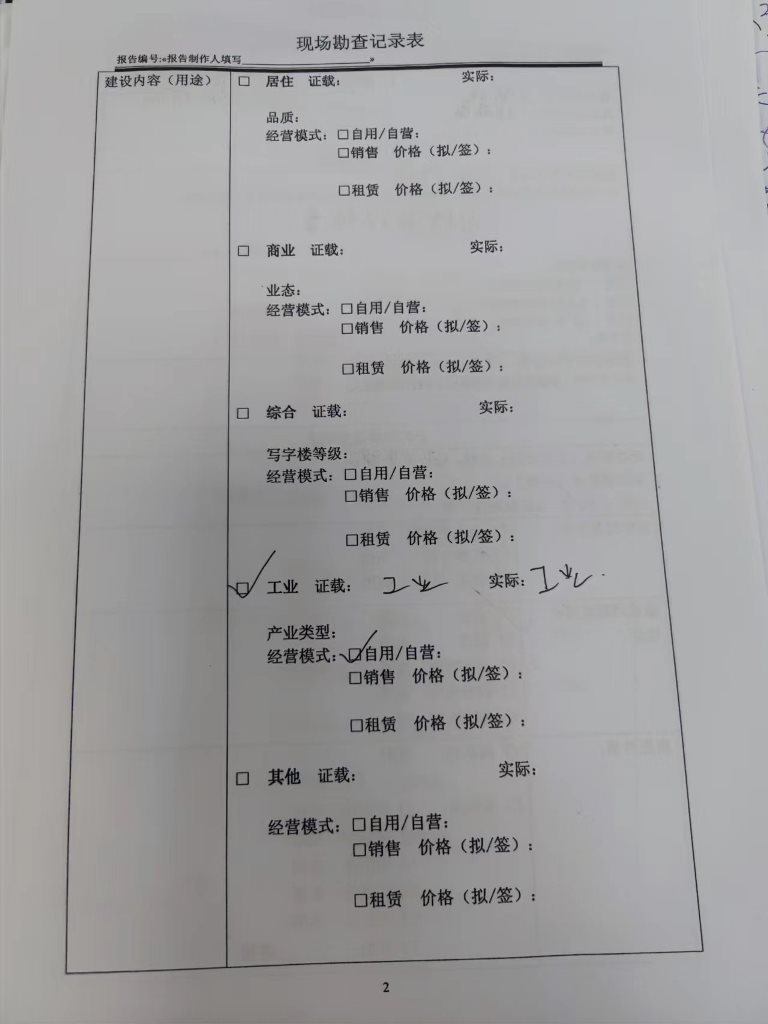 现场勘查记录表
报告编号:«报告制作人填写____________________»
建设内容（用途）
□ 居住 证载： 实际：
品质：
经营模式：□自用/自营：
□销售 价格（拟/签）：
□租赁 价格（拟/签）：
□ 商业 证载： 实际：
业态：
经营模式：□自用/自营：
□销售 价格（拟/签）：
□租赁 价格（拟/签）：
□ 综合 证载： 实际：
写字楼等级：
经营模式：□自用/自营：
□销售 价格（拟/签）：
□租赁 价格（拟/签）：
☑ 工业 证载： 工业 实际：工业.
产业类型：
经营模式：☑自用/自营：
□销售 价格（拟/签）：
□租赁 价格（拟/签）：
□ 其他 证载： 实际：
经营模式：□自用/自营：
□销售 价格（拟/签）：
□租赁 价格（拟/签）：
2